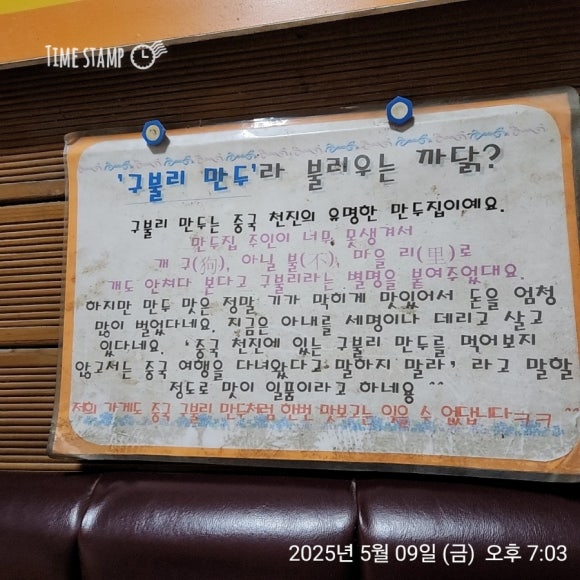 TIME STAMP
'구불리 만두'라 불리우는 까닭?
구불리 만두는 중국 천진의 유명한 만두집이예요.
만두집 주인이 너무 못생겨서
개 구(狗), 아닐 불(不), 마을 리(里)로
개도 안쳐다 보다고 구불리라는 별명을 붙여주었대요.
하지만 만두 맛은 정말 기가 막히게 맛있어서 돈을 엄청
많이 벌었다네요. 지금은 아내를 세명이나 데리고 살고
있다네요. '중국 천진에 있는 구불리 만두를 먹어보지
않고서는 중국 여행을 다녀왔다고 말하지 말라' 라고 말할
정도로 맛이 일품이라고 하네용 ^^
저희 가게도 중국 구불리 만두처럼 한번 맛보고는 잊을 수 없답니다ㅋㅋㅋ ^^
2025년 5월 09일 (금) 오후 7:03